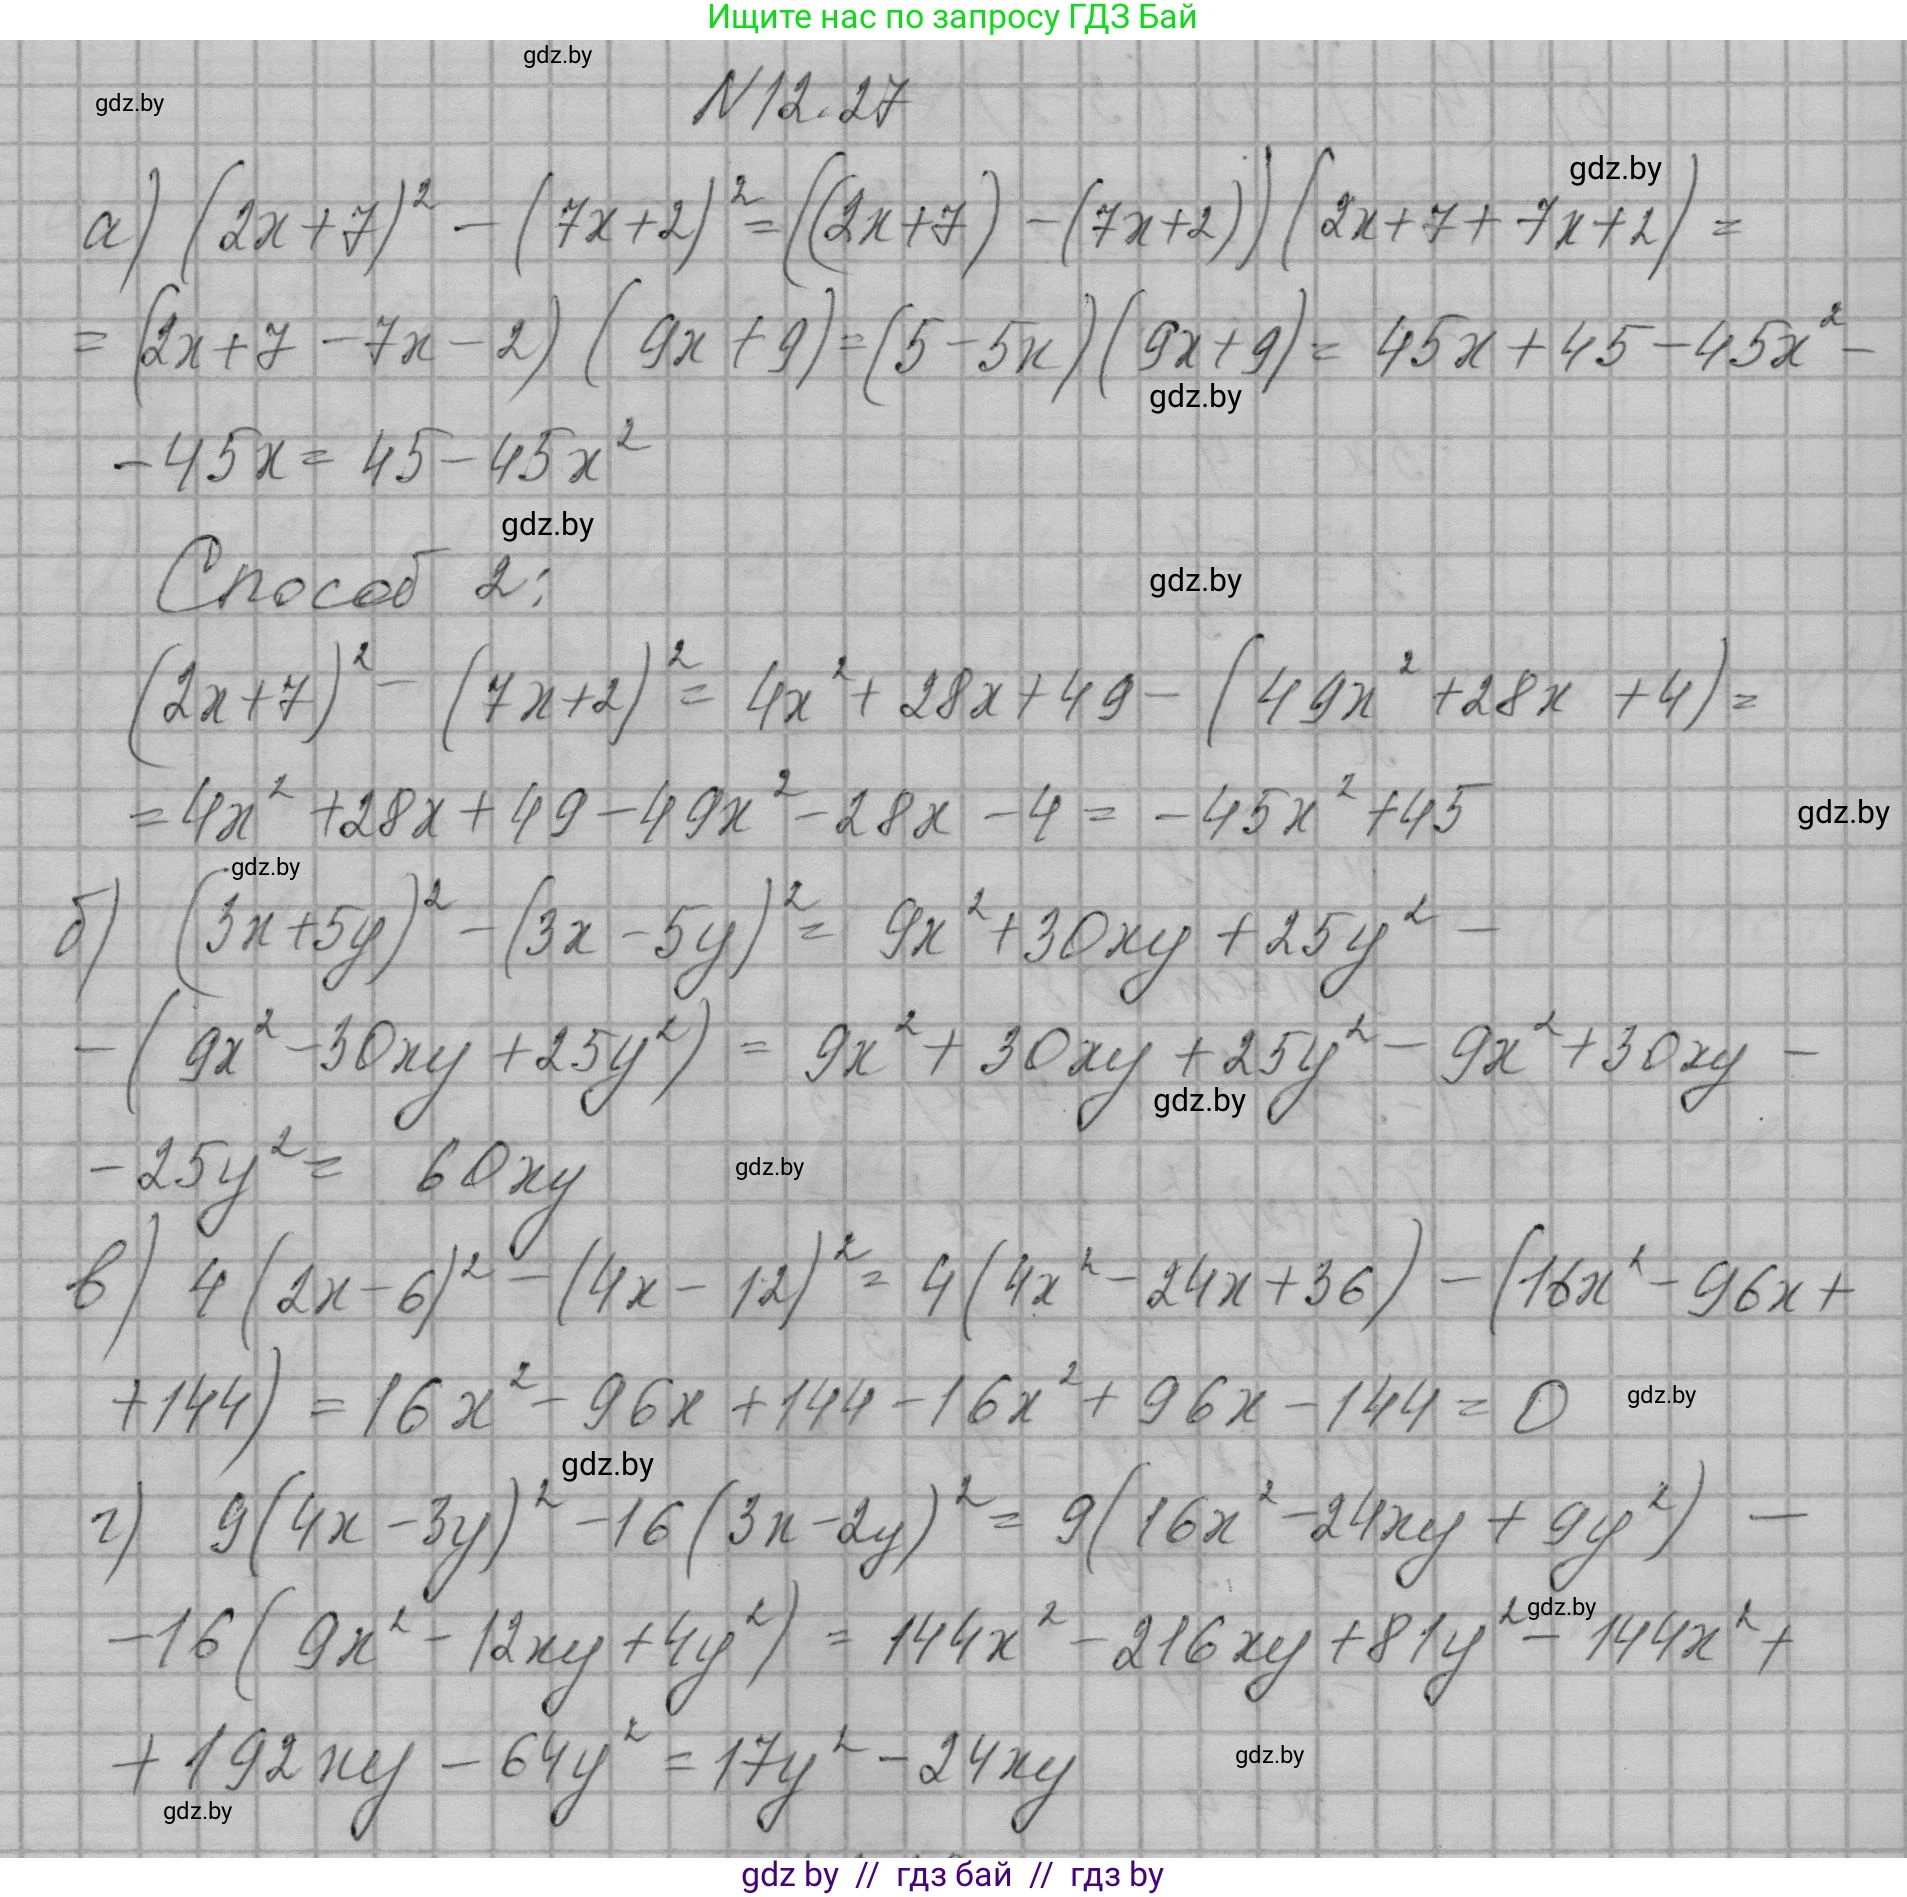 Ищите нас по запросу ГДЗ Бай
gdz.by
gdz.by
N12.27
gdz.by
а) (2x+7)² - (7x+2)² = ((2x+7) - (7x+2)) (2x+7+7x+2) =
= (2x+7-7x-2) (9x+9) = (5-5x) (9x+9) = 45x+45-45x² -
gdz.by
-45x = 45-45x²
gdz.by
Способ 2:
gdz.by
(2x+7)² - (7x+2)² = 4x² + 28x+49 - (49x² +28x +4) =
= 4x² +28x+49-49x² -28x -4 = -45x² +45
gdz.by
gdz.by
б) (3x+5y)² - (3x-5y)² = 9x² +30xy +25y² -
- (9x² -30xy +25y²) = 9x² + 30xy +25y² - 9x² +30xy -
gdz.by
-25y² = 60xy
gdz.by
в) 4(2x-6)² - (4x-12)² = 4(4x² -24x+36) - (16x² -96x+
+144) = 16x² -96x +144 -16x² + 96x -144 = 0
gdz.by
gdz.by
г) 9(4x-3y)² -16(3x-2y)² = 9(16x² -24xy + 9y²) -
gdz.by
-16(9x² -12xy +4y²) = 144x² -216xy +81y² - 144x² +
+ 192xy - 64y² = 17y² -24xy
gdz.by
gdz.by
gdz by // гдз бай // гдз by